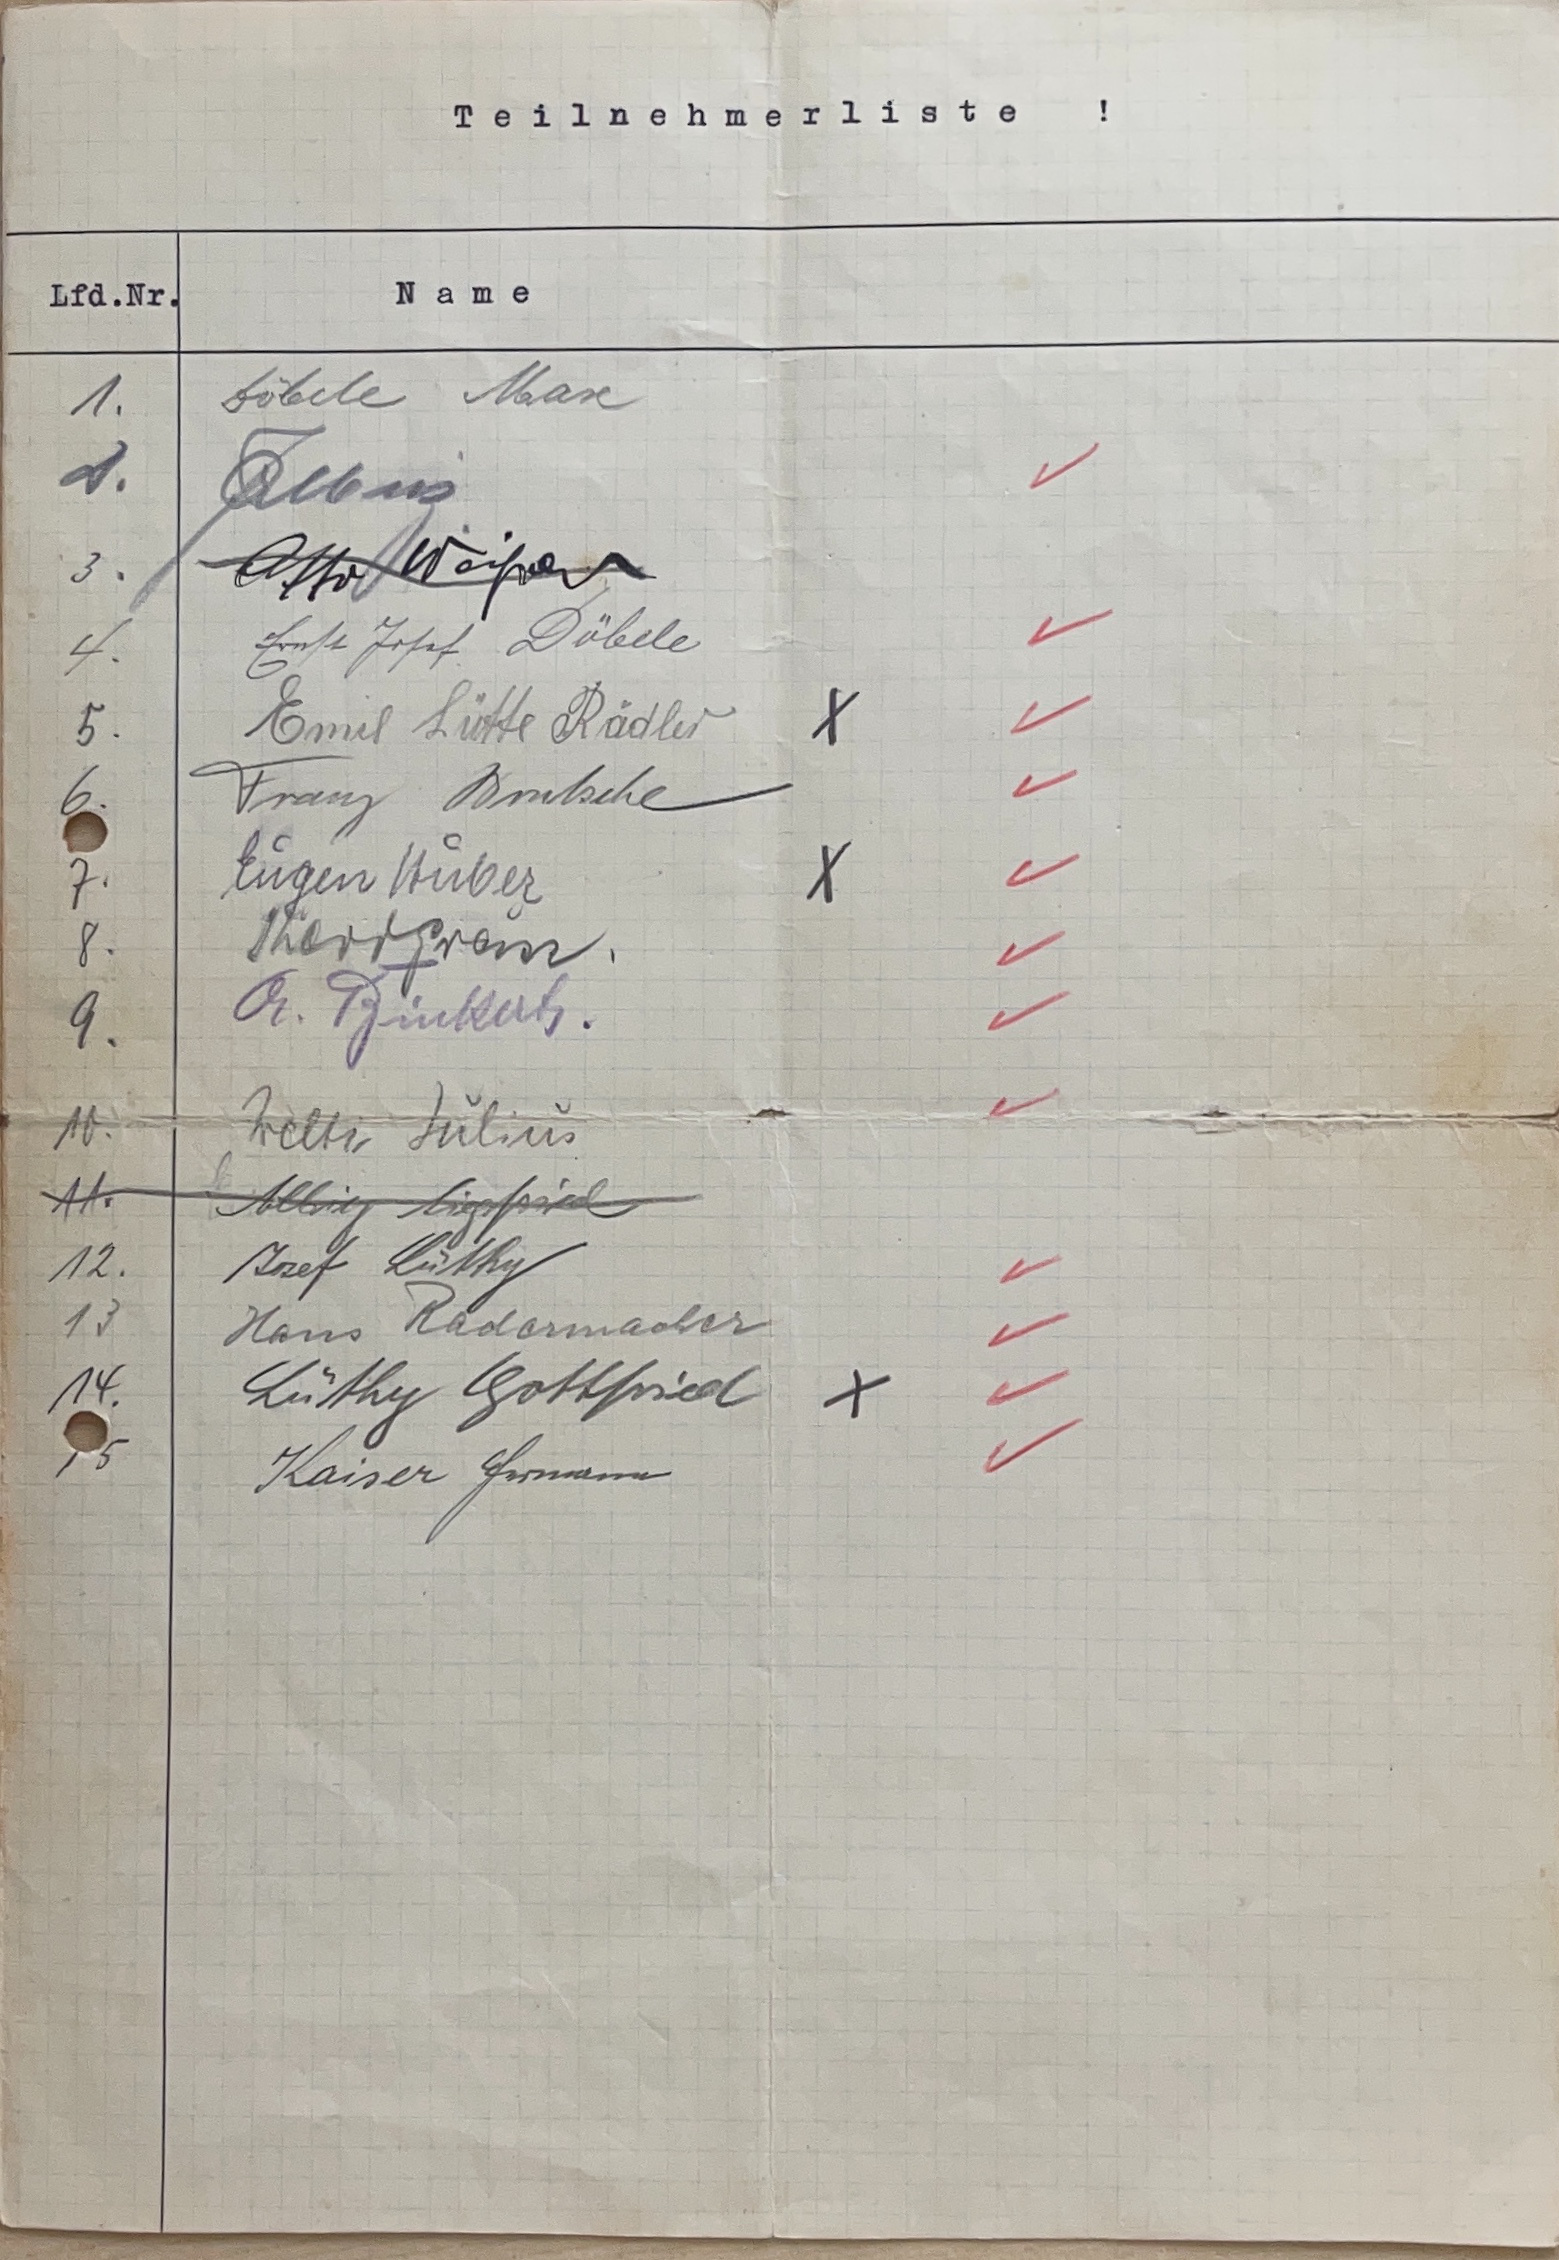 Teilnehmerliste !
Lfd.Nr. Name
1. Döbele Max
2. Albiez
3. Otto
4. Ernst Josef Döbele
5. Emil Lütte Rädler X
6. Franz
7. Eugen Huber X
8.
9.
10. Welte Julius
11. Albiez Siegfried
12. Josef Lüthy
13 Hans Radermacher
14. Lüthy Gottfried X
15 Kaiser Hermann